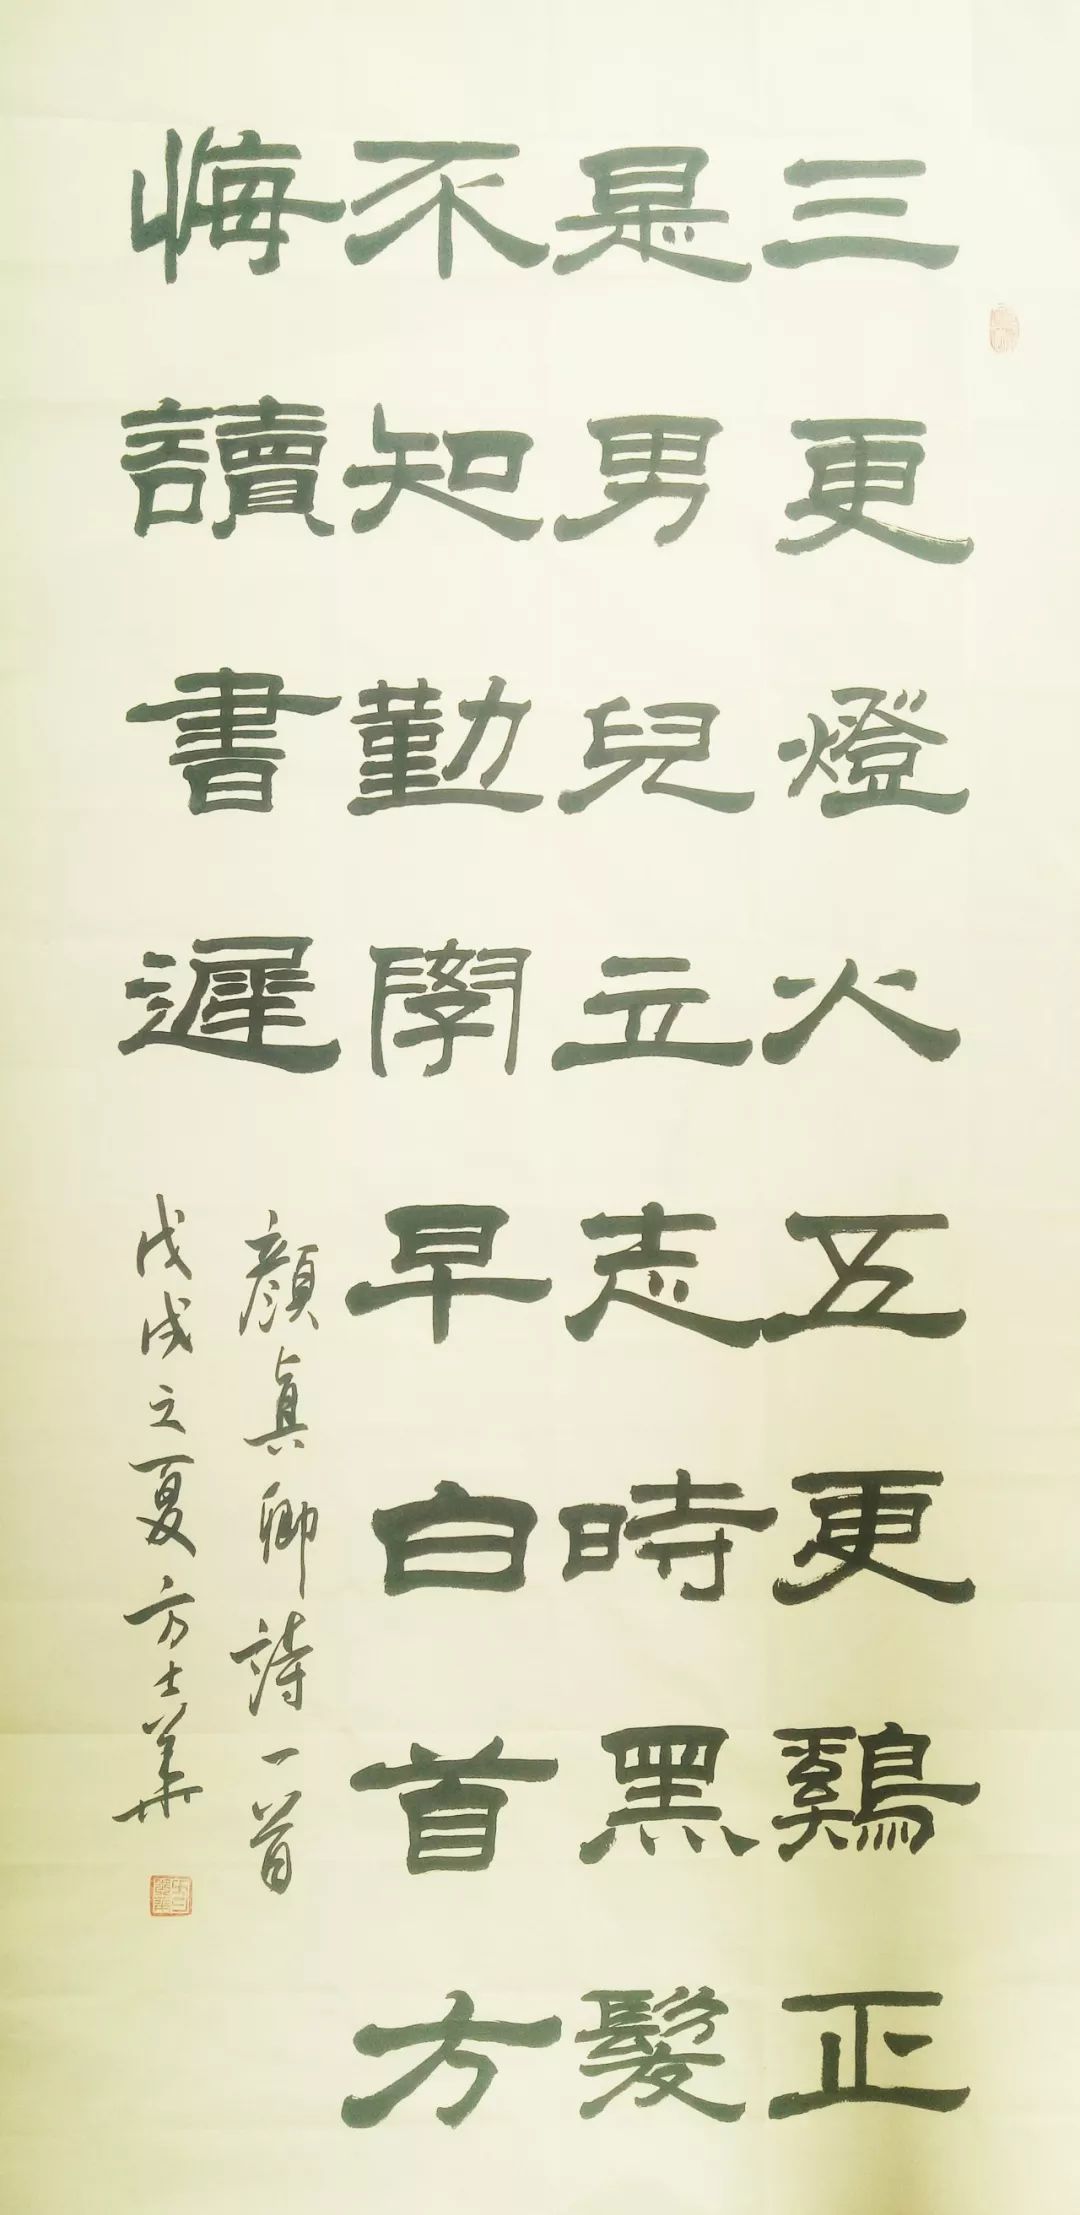 三更燈火五更鷄正
是男兒立志時黑髮
不知勤學早白首方
悔讀書遲
顏真卿詩一首
戊戌之夏方士華